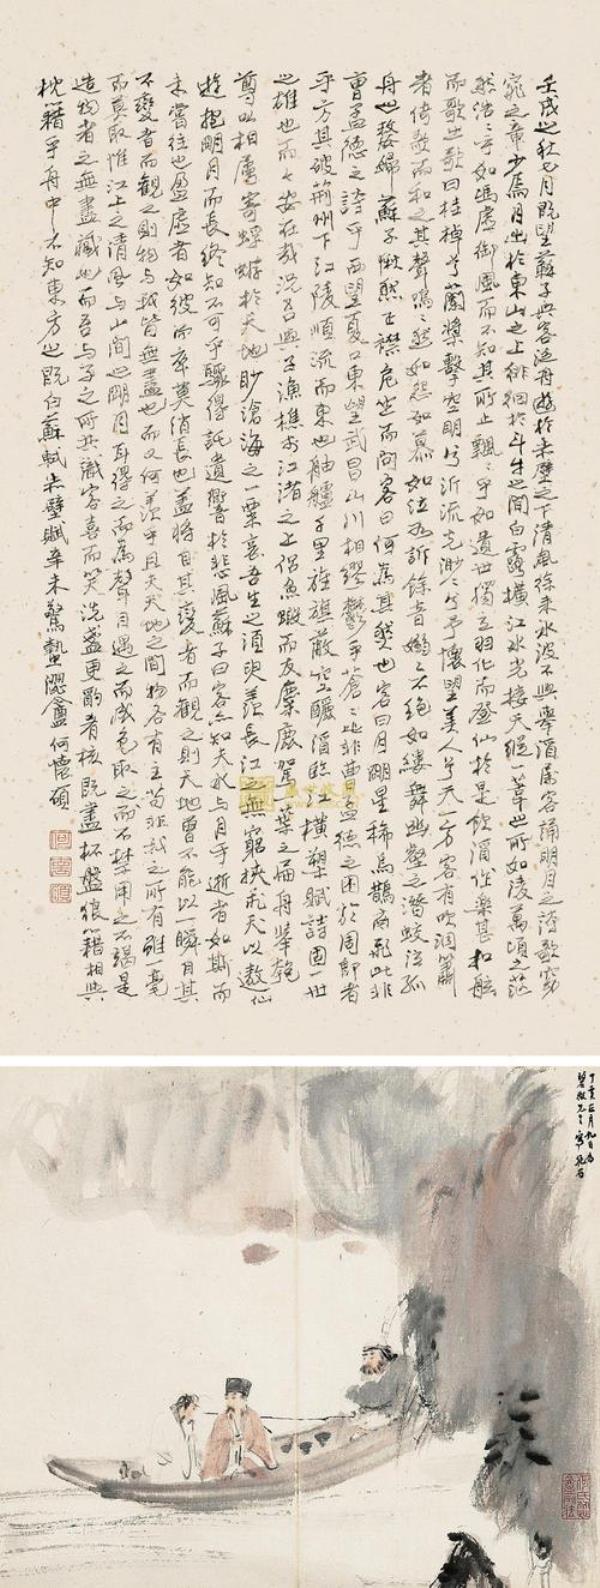 壬戌之秋七月既望蘇子與客泛舟遊於赤壁之下清風徐來水波不興舉酒屬客誦明月之詩歌窈
窕之章少焉月出於東山之上徘徊於斗牛之間白露橫江水光接天縱一葦之所如陵萬頃之茫
然浩浩乎如馮虛御風而不知其所止飄飄乎如遺世獨立羽化而登仙於是飲酒作樂甚扣舷
而歌之歌曰桂棹兮蘭槳擊空明兮泝流光渺渺兮予懷望美人兮天一方客有吹洞簫
者倚歌而和之其聲嗚嗚然如怨如慕如泣如訴餘音嫋嫋不絕如縷舞幽壑之潛蛟泣孤
舟之嫠婦蘇子愀然正襟危坐而問客曰何為其然也客曰月明星稀烏鵲南飛此非
曹孟德之詩乎西望夏口東望武昌山川相繆鬱乎蒼蒼此非曹孟德之困於周郎者
乎方其破荊州下江陵順流而東也舳艫千里旌旗蔽空釃酒臨江橫槊賦詩固一世
之雄也而今安在哉況吾與子漁樵於江渚之上侶魚蝦而友麋鹿駕一葉之扁舟舉匏
尊以相屬寄蜉蝣於天地眇滄海之一粟哀吾生之須臾羨長江之無窮挾飛天以遨仙
遊抱明月而長終知不可乎驟得託遺響於悲風蘇子曰客亦知夫水與月乎逝者如斯而
未嘗往也盈虛者如彼而卒莫消長也蓋將自其變者而觀之則天地曾不能以一瞬自其
不變者而觀之則物與我皆無盡也而又何羨乎且夫天地之間物各有主苟非我之所有雖一毫
而莫取惟江上之清風與山間之明月耳得之而為聲目遇之而成色取之而不禁用之不竭是
造物者之無盡藏也而吾與子之所共識客喜而笑洗盞更酌肴核既盡杯盤狼籍相與
枕籍乎舟中不知東方之既白蘇軾赤壁賦辛未驚蟄澀盦何懷碩
何懷碩
丁亥正月九日為
碧微先生寫抱石